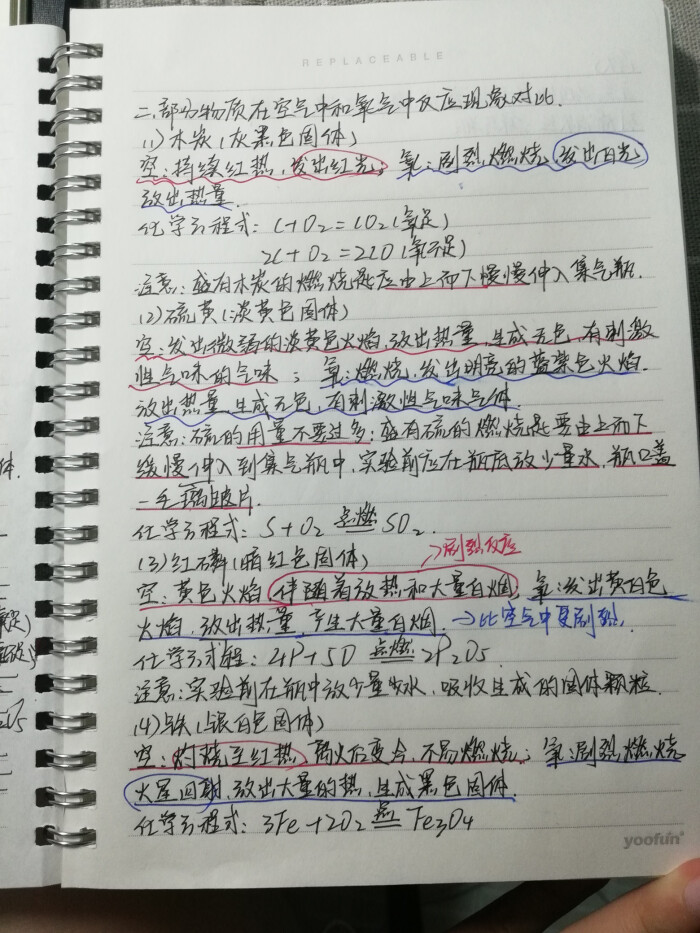 REPLACEABLE
二.部分物质在空气中和氧气中反应现象对比.
(1)木炭(灰黑色固体)
空:持续红热,发出红光; 氧:剧烈燃烧,发出白光,
放出热量.
化学方程式: C+O2=CO2(氧足)
2C+O2=2CO(氧不足)
注意:盛有木炭的燃烧匙应由上而下慢慢伸入集气瓶.
(2)硫黄(淡黄色固体)
空:发出微弱的淡黄色火焰,放出热量,生成无色,有刺激
性气味的气味; 氧:燃烧,发出明亮的蓝紫色火焰.
放出热量,生成无色,有刺激性气味气体.
注意:硫的用量不要过多;盛有硫的燃烧匙要由上而下
缓慢伸入到集气瓶中,实验前应在瓶底放少量水,瓶口盖
一毛玻片.
化学方程式: S+O2 点燃 SO2.
(3)红磷(暗红色固体) →剧烈反应
空:黄色火焰,伴随着放热和大量白烟, 氧:发出黄白色
火焰,放出热量,产生大量白烟. →比空气中更剧烈.
化学方程: 4P+5O 点燃 2P2O5
注意:实验前在瓶中放少量水,吸收生成的固体颗粒.
(4)铁(银白色固体)
空:灼烧至红热,离火后变冷,不易燃烧; 氧:剧烈燃烧
火星四射,放出大量的热,生成黑色固体.
化学方程式: 3Fe+2O2 点燃 Fe3O4
yoofun
体.
2O5